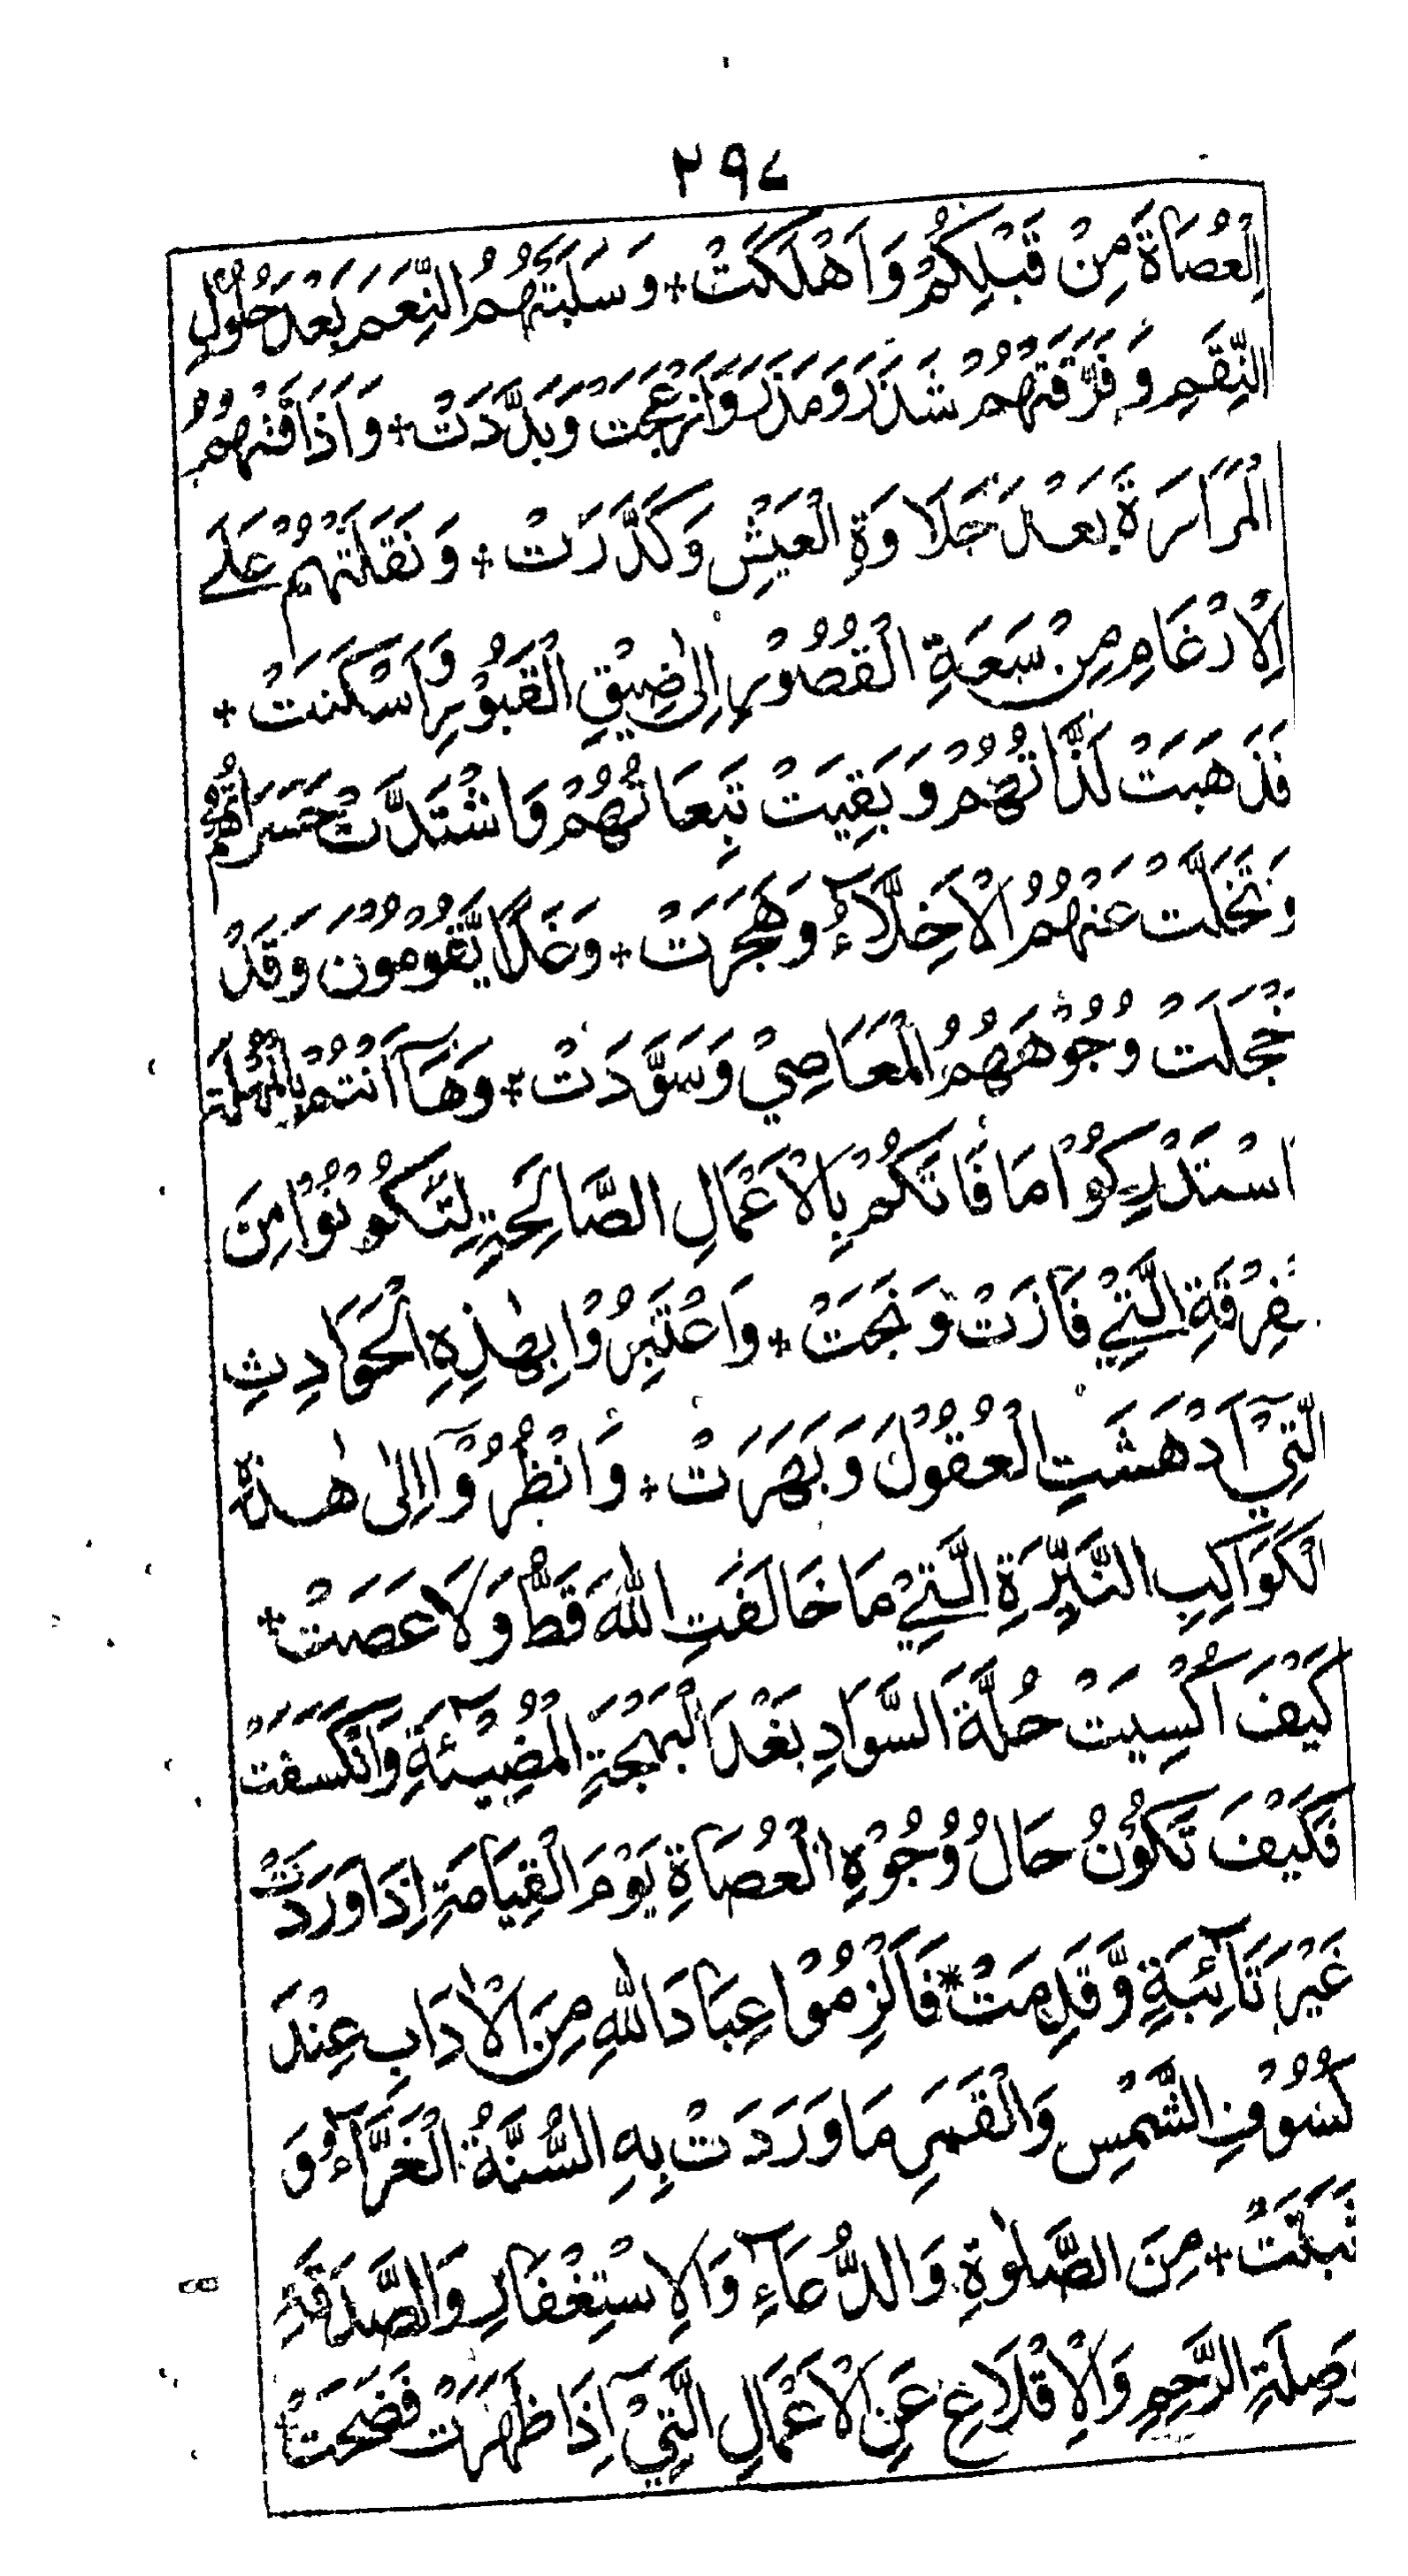 ٢٩٧
الْعُصَاةَ مِنْ قَبْلِكُمْ وَاَهْلَكَتْ + وَسَلَبَتْهُمُ النِّعَمَ بَعْدَ حُلُوْلِ
النِّقَمِ وَفَرَّقَتْهُمْ شَذَرَ وَمَذَرَ وَاَزْعَجَتْ وَبَدَّدَتْ + وَاَذَاقَتْهُمُ
الْمَرَارَةَ بَعْدَ حَلَاوَةِ الْعَيْشِ وَكَدَّرَتْ + وَنَقَلَتْهُمْ عَلَے
الْاِرْغَامِ مِنْ سَعَةِ الْقُصُوْرِ اِلٰى ضِيْقِ الْقُبُوْرِ وَاَسْكَنَتْ +
فَذَهَبَتْ لَذَّاتُهُمْ وَبَقِيَتْ تَبِعَاتُهُمْ وَاشْتَدَّتْ حَسَرَاتُهُمْ
وَتَخَلَّتْ عَنْهُمُ الْاَخِلَّآءُ وَهَجَرَتْ + وَغَدًا يَّقُوْمُوْنَ وَقَدْ
خَجَلَتْ وُجُوْهَهُمُ الْمَعَاصِيْ وَسَوَّدَتْ + وَهَآ اَنْتُمْ بِالْمُهْلَةِ
اسْتَدْرِكُوْا مَا فَاتَكُمْ بِالْاَعْمَالِ الصَّالِحَةِ لِتَكُوْنُوْا مِنَ
لْفِرْقَةِ الَّتِيْ فَازَتْ وَنَجَتْ + وَاعْتَبِرُوْا بِهٰذِهِ الْحَوَادِثِ
الَّتِيْ اَدْهَشَتِ الْعُقُوْلَ وَبَهَرَتْ + وَانْظُرُوْٓا اِلٰى هٰذِهِ
الْكَوَاكِبِ النَّيِّرَةِ الَّتِيْ مَا خَالَفَتِ اللّٰهَ قَطُّ وَلَا عَصَتْ +
كَيْفَ اُكْسِيَتْ حُلَّةَ السَّوَادِ بَعْدَ الْبَهْجَةِ الْمُضِيْٓئَةِ وَانْكَسَفَتْ
فَكَيْفَ تَكُوْنُ حَالُ وُجُوْهِ الْعُصَاةِ يَوْمَ الْقِيَامَةِ اِذَا وَرَدَتْ
غَيْرَ تَآئِبَةٍ وَّقَدِمَتْ * فَالْزِمُوْا عِبَادَ اللّٰهِ مِنَ الْاٰدَابِ عِنْدَ
كُسُوْفِ الشَّمْسِ وَالْقَمَرِ مَا وَرَدَتْ بِهِ السُّنَّةُ الْغَرَّآءُ وَ
ثَبَتَتْ + مِنَ الصَّلٰوةِ وَالدُّعَآءِ وَالْاِسْتِغْفَارِ وَالصَّدَقَةِ
وَصِلَةِ الرَّحِمِ وَالْاِقْلَاعِ عَنِ الْاَعْمَالِ الَّتِيْٓ اِذَا ظَهَرَتْ فَضَحَتْ